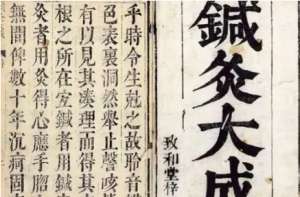 鍼灸大成
致和堂梓
乎時令生尅之故聆音
邑表裏洞然舉止謦咳
有以見其湊理而得其
根之所在宜鍼者用鍼
灸者用灸得心應手
無間俾數十年沉痾固